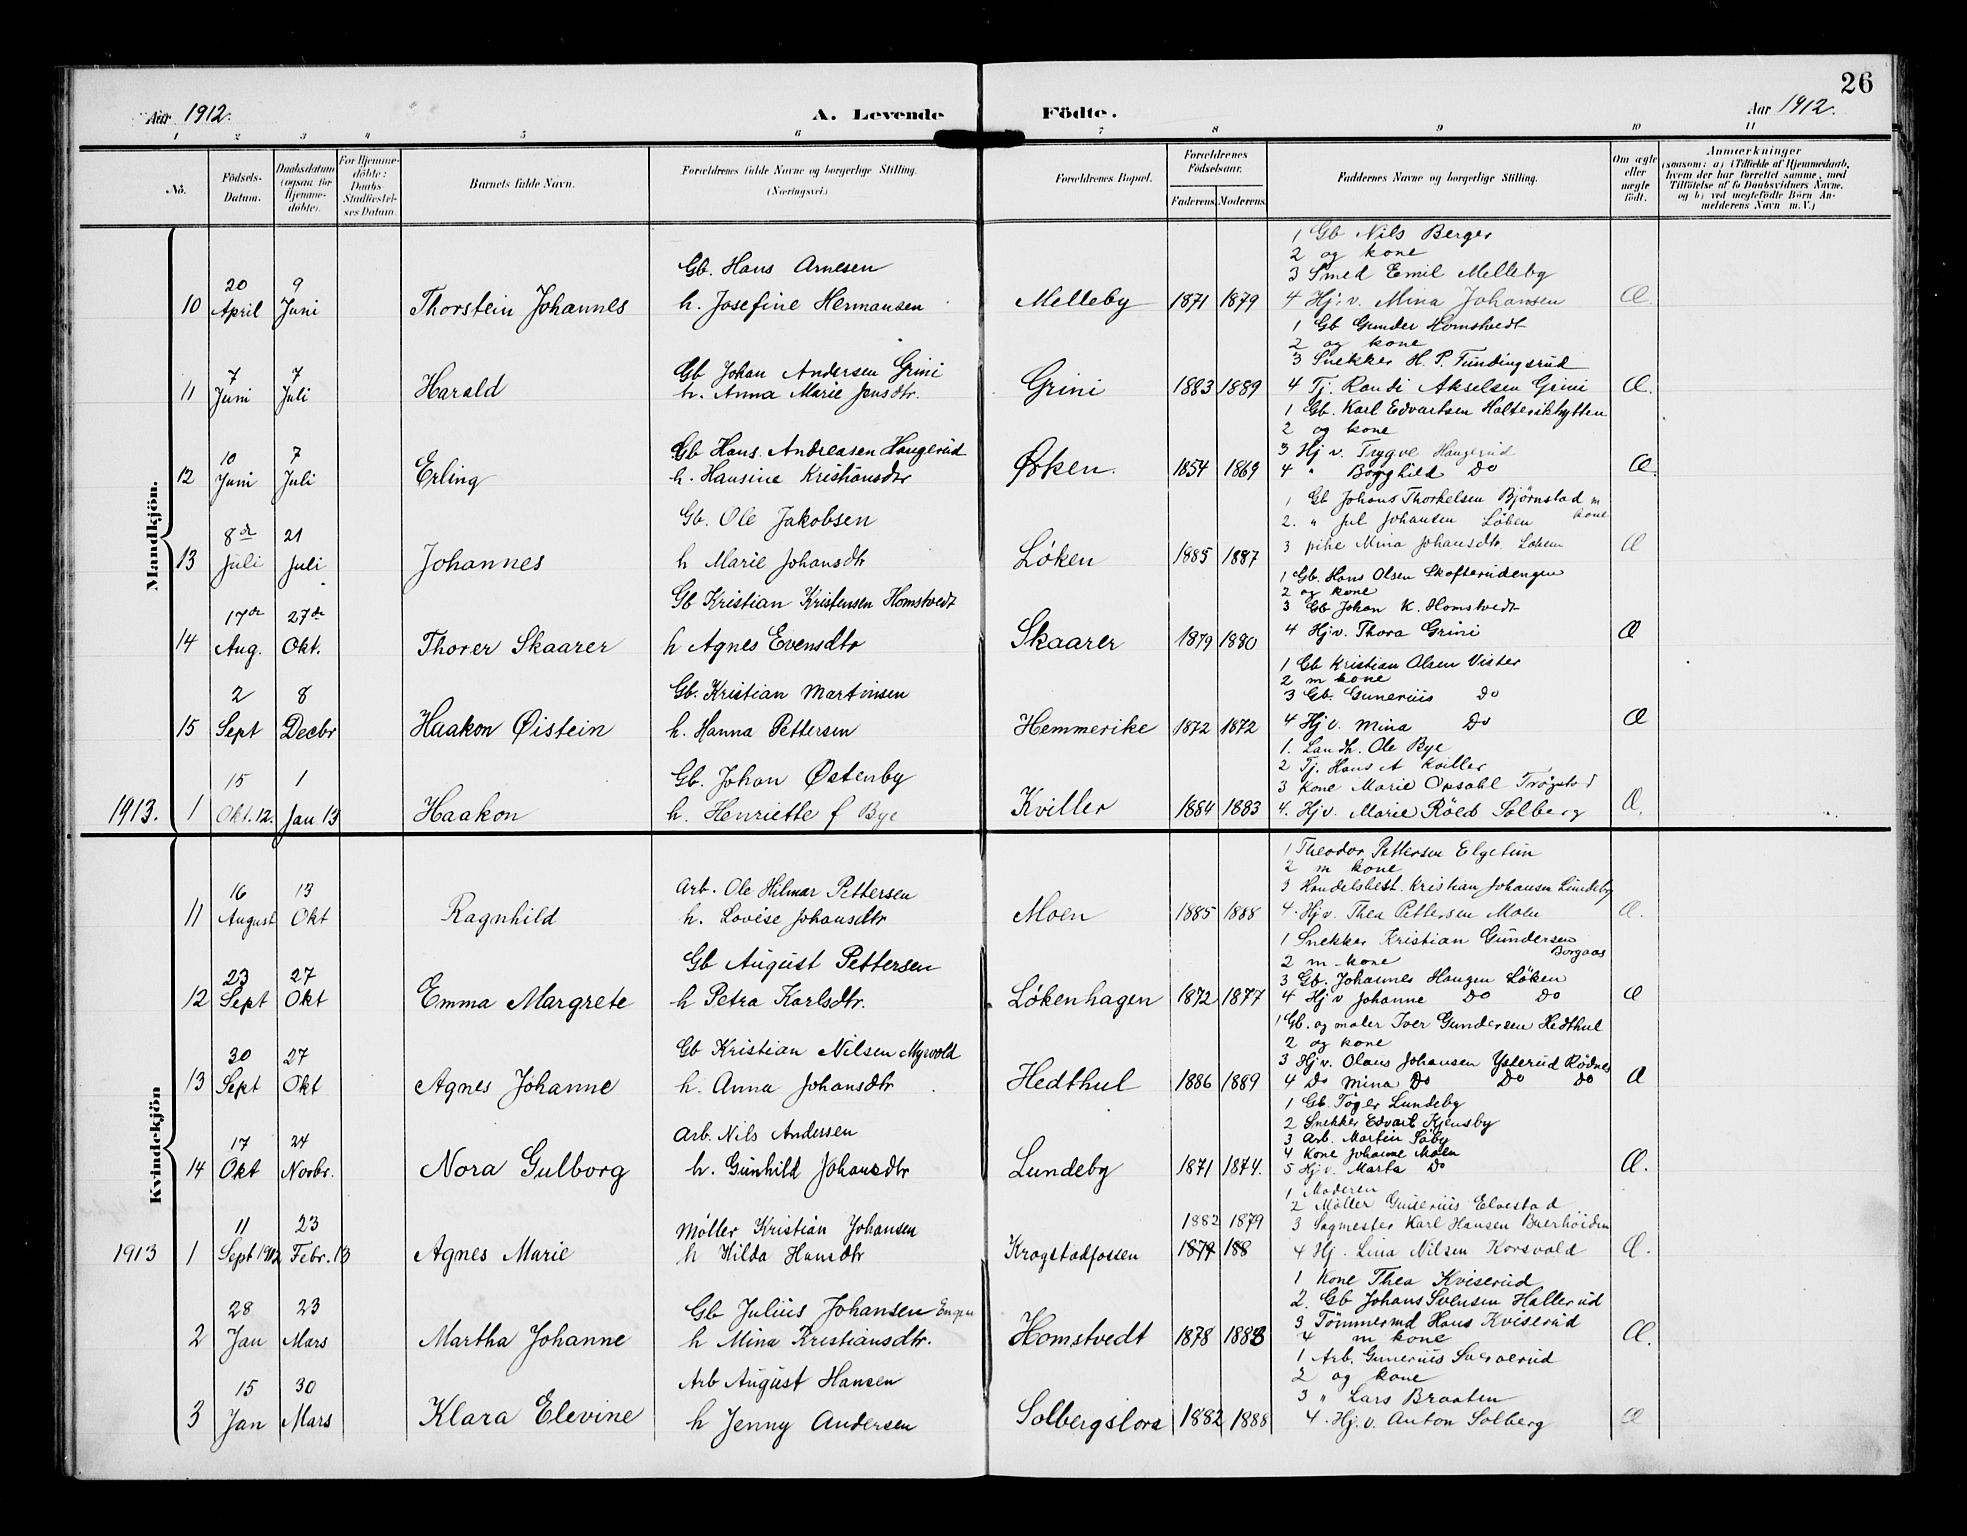 26
Aar 1912. A. Levende Födte. Aar 1912.
1 2 3 4 5 6 7 8 9 10 11
No. Födsels-Datum. Daabsdatum (ogsaa for Hjemme-döbte). For Hjemme-döbte: Daabs-Stadfæstel-ses Datum. Barnets fulde Navn. Forældrenes fulde Navne og borgerlige Stilling. (Næringsvei.) Forældrenes Bopæl. Forældrenes Födselsaar. Faderens. Moderens. Faddernes Navne og borgerlige Stilling. Om ægte eller uægte födt. Anmærkninger (saasom: a) i Tilfælde af Hjemmedaab, hvem der har forrettet samme, med Tilföielse af to Daabsvidners Navne, og b) ved uægtefödte Börn An-melderens Navn m. V.)
Mandkjön.
1 Gb Nils Berger
2 og kone
20 9 Gb. Hans Arnesen 3 Smed Emil Melleby
10 April Juni Thorstein Johannes h. Josefine Hermansen Melleby 1871 1879 4 Hj. v. Mina Johansen Æ.
1 Gb Gunder Homstvedt
2 og kone
7 7 Gb Johan Andersen Grini 3 Snekker H. P. Tundingsrud
11 Juni Juli Harald h. Anna Marie Jensdtr. Grini 1883 1889 4 Tj. Randi Akselsen Grini Æ.
1 Gb. Karl Edvartsen Haltерikhytten
2 og kone
10 7 Gb Hans Andreasen Haugerud 3 Hj v. Trygve Haugerud
12 Juni Juli Erling h. Hansine Kristiansdtr Ørken. 1854 1869 4 " Borghild Do Æ.
1 Gb Johans Thorkelsen Bjørnstad m kone
8de 21 Gb. Ole Jakobsen 2. " Jul Johansen Løken
13 Juli Juli Johannes h Marie Johansdtr Løken 1885 1887 3 pike Mina Johansdtr. Løken Æ
1 Gb. Hans Olsen Skofterudengen
2 og kone
17de 27de Gb Kristian Kristensen Homstvedt 3 Gb Johan K. Homstvedt
14 Aug. Okt. Thorer Skaarer h Agnes Evensdtr Skaarer 1879 1880 4 Hjv. Thora Grini Æ
1 Gb Kristian Olsen Vister
2 m kone
2 8 Gb. Kristian Martinsen 3 Gb. Gunerius Do
15 Sept Decbr Haakon Øistein h. Hanna Pettersen Hemmerike 1872 1872 4 Hj v. Mina Do Æ
1. Landh. Ole Bye
2 Tj. Hans A Kviller
15 1 Gb. Johan Østenby 3 Kone Marie Opsahl Trøgstad
1913. 1 Okt. 12. Jan 13 Haakon h. Henriette f Bye Kviller 1884 1883 4. Hj v. Marie Röed Solberg Æ.
Kvindekjön
1 Theodor Pettersen Elgetun
2 m kone
16 13 Arb. Ole Hilmar Pettersen 3 Handelsbest. Kristian Johansen Lundeby
11 August Okt Ragnhild h. Lovise Johansdtr Moen 1885 1888 4. Hj v. Thea Pettersen Moen Æ.
1 Snekker Kristian Gundersen Borgaas
2 m kone
23 27 Gb August Pettersen 3 Gb. Johannes Haugen Løken
12 Sept Okt Emma Margrete h Petra Karlsdtr. Løkenhagen 1872 1877 4 Hj v Johanne Do Do Æ
1 Gb. og maler Iver Gundersen Hedthul
2 og kone
30 27 Gb Kristian Nilsen Myrvold 3 Hj v. Olaus Johansen Ysterud Rødnes
13 Sept Okt Agnes Johanne h. Anna Johansdtr Hedthul 1886 1889 4 Do Mina Do Do Do Æ
1 Gb. Töger Lundeby
2 Snekker Edvart Kjensby
17 24 Arb. Nils Andersen 3 Arb. Martin Säby
4 Kone Johanne Moen
14 Okt Novbr. Nora Gulborg h. Gunhild Johansdtr Lundeby 1871 1874. 5 Hj v. Marta Do Æ.
1 Moderen
2 Møller Gunerius Elvestad
11 23 Møller Kristian Johansen 1882 1879 3 Sagmester Karl Hansen Buerhöiden
1913 1 Sept 1912 Febr. 13 Agnes Marie h Hilda Hansdtr Krogstadfossen 1879 188 4 Hj. Lina Nilsen Korsvold Æ.
1 Kone Thea Kviserud
2. Gb Johans Svensen Hallerud
28 23 Gb Julius Johansen Engen 3 Tömmermd Hans Kviserud
2 Jan Mars Martha Johanne h Mina Kristiansdtr. Homstvedt 1878 1883 4 m kone Æ.
1 Arb. Gunerius
2 og kone
15 30 Arb August Hansen 3 " Lars Braaten
3 Jan Mars Klara Elevine h Jenny Andersen Solbergslora 1882 1888 4. Hj. v. Anton Solberg Æ